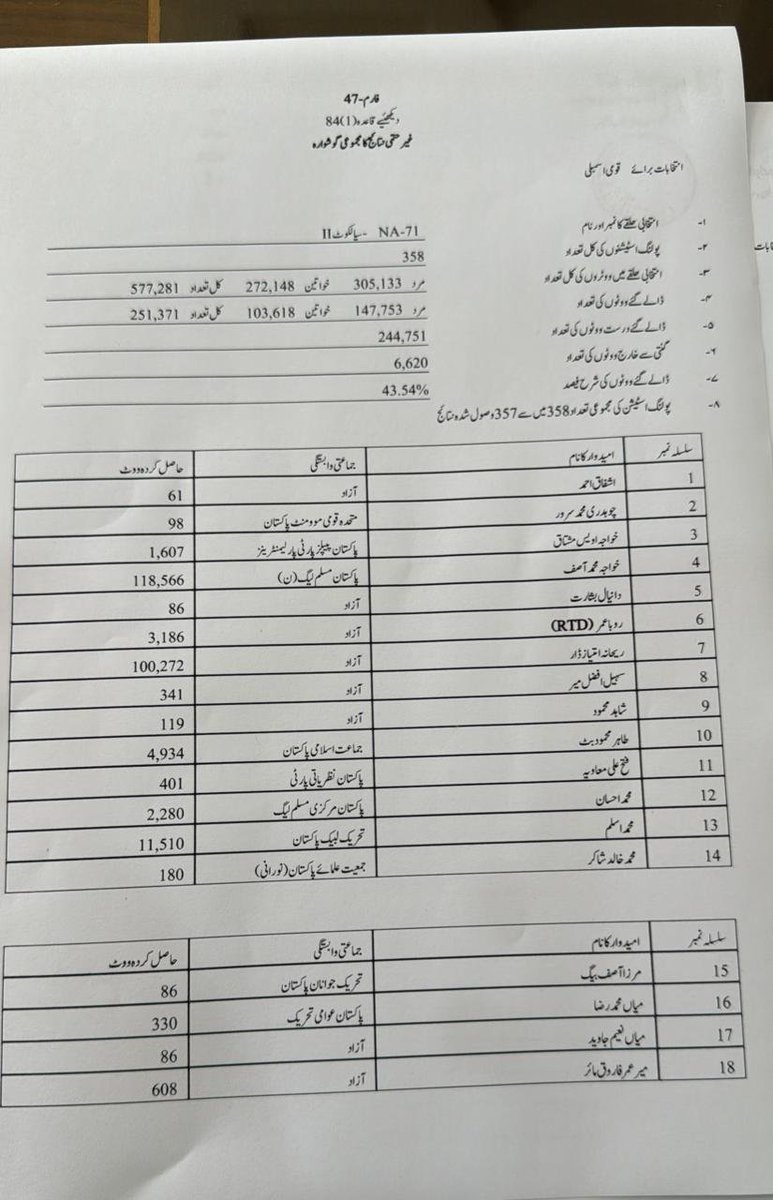 فارم-47
دیکھئیے قاعدہ (1)84
غیر حتمی نتائج کا مجموعی گوشوارہ
انتخابات برائے قومی اسمبلی
۱- انتخابی حلقے کا نمبر اور نام NA-71 -سیالکوٹ II
۲- پولنگ اسٹیشنوں کی کل تعداد 358
۳- انتخابی حلقے میں ووٹروں کی کل تعداد مرد 305,133 خواتین 272,148 کل تعداد 577,281
۴- ڈالے گئے ووٹوں کی تعداد مرد 147,753 خواتین 103,618 کل تعداد 251,371
۵- ڈالے گئے درست ووٹوں کی تعداد 244,751
۶- گنتی سے خارج ووٹوں کی تعداد 6,620
۷- ڈالے گئے ووٹوں کی شرح فیصد 43.54%
۸- پولنگ اسٹیشن کی مجموعی تعداد 358 میں سے 357 وصول شدہ نتائج
سلسلہ نمبر امیدوار کا نام جماعتی وابستگی حاصل کردہ ووٹ
1 اشفاق احمد آزاد 61
2 چوہدری محمد سرور متحدہ قومی موومنٹ پاکستان 98
3 خواجہ اویس مشتاق پاکستان پیپلز پارٹی پارلیمنٹرینز 1,607
4 خواجہ محمد آصف پاکستان مسلم لیگ (ن) 118,566
5 دانیال بشارت آزاد 86
6 روبا عمر (RTD) آزاد 3,186
7 ریحانہ امتیاز ڈار آزاد 100,272
8 سہیل افضل میر آزاد 341
9 شاہد محمود آزاد 119
10 طاہر محمود بٹ جماعت اسلامی پاکستان 4,934
11 فتح علی معاویہ پاکستان نظریاتی پارٹی 401
12 محمد احسان پاکستان مرکزی مسلم لیگ 2,280
13 محمد اسلم تحریک لبیک پاکستان 11,510
14 محمد خالد شاکر جمعیت علمائے پاکستان (نورانی) 180
سلسلہ نمبر امیدوار کا نام جماعتی وابستگی حاصل کردہ ووٹ
15 مرزا آصف بیگ تحریک جوانان پاکستان 86
16 میاں محمد رضا پاکستان عوامی تحریک 330
17 میاں نعیم جاوید آزاد 86
18 میر عمر فاروق مائر آزاد 608